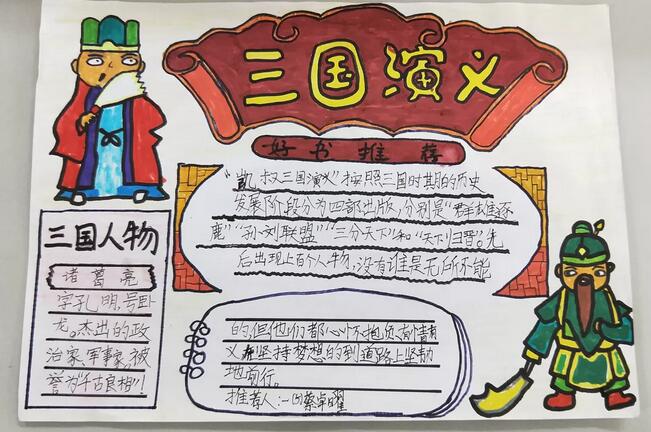 三国演义
好书推荐
“凯叔三国演义”按照三国时期的历史
发展阶段分为四部出版，分别是“群雄逐
鹿”“孙刘联盟”“三分天下”和“天下归晋”。先
后出现上百个人物，没有谁是无所不能
的，但他们都心怀抱负、有情有
义在坚持梦想的到道路上坚韧
地前行。
推荐人：一(1)蔡卓曜
三国人物
诸葛亮
字孔明，号卧
龙。杰出的政
治家、军事家，被
誉为“千古良相”！